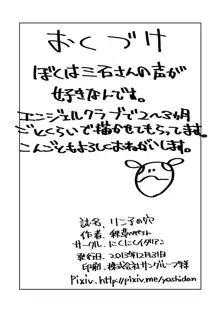 おくづけ
ぼくは三石さんの声が
好きなんです。
エンジェルクラブで2～3ヵ月
ごとくらいで描かせてもらってます。
こんごともよろしくおねがいします。
誌名、リン子の穴
作者、
サークル、にくにくイタリアン
発行日、2013年12月31日
印刷、株式会社サングループ様
Pixiv、http://pixiv.me/yoshidan